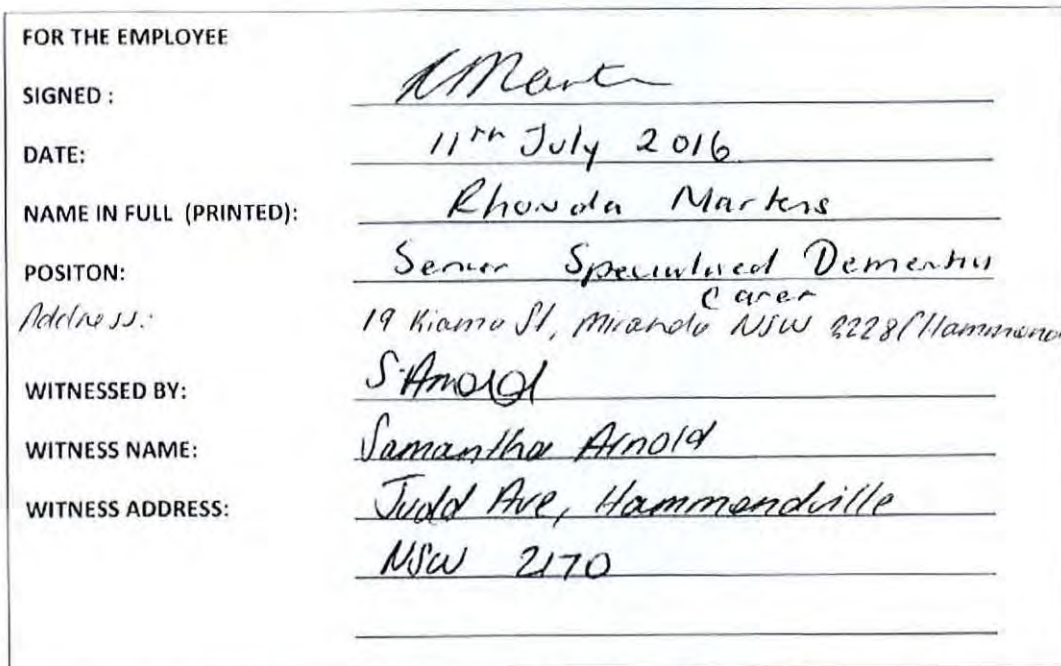 FOR THE EMPLOYEE
SIGNED :
DATE: 11th July 2016
NAME IN FULL (PRINTED): Rhonda Martens
POSITON: Senior Specialised Dementia
Carer
Address: 19 Kiama St, Miranda NSW 2228 (Hammond
WITNESSED BY: S Arnold
WITNESS NAME: Samantha Arnold
WITNESS ADDRESS: Judd Ave, Hammondville
NSW 2170